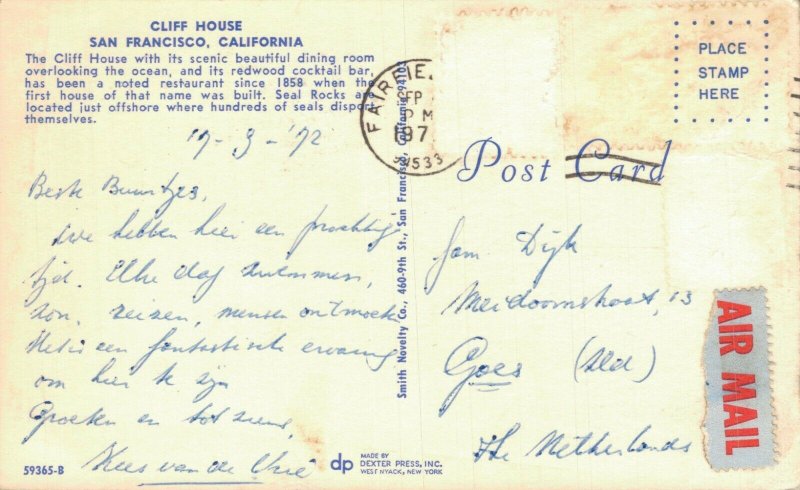 CLIFF HOUSE
SAN FRANCISCO, CALIFORNIA
The Cliff House with its scenic beautiful dining room
overlooking the ocean, and its redwood cocktail bar,
has been a noted restaurant since 1858 when the
first house of that name was built. Seal Rocks are
located just offshore where hundreds of seals disport
themselves.
17-9-'72
Beste Buurtjes,
We hebben hier een prachtig
tijd. Elke dag zwemmen,
zon, reizen, mensen ontmoeten
Het is een fantastische ervaring
om hier te zijn
Groeten en tot ziens,
Kees van de
59365-B
dp
MADE BY
DEXTER PRESS, INC.
WEST NYACK, NEW YORK
Smith Novelty Co., 460-9th St., San Francisco, California 94103
FAIRFIE
SEP
PM
197
94533
PLACE
STAMP
HERE
Post Card
fam Dijk
Meidoornstraat, 13
Goes (Zld)
The Netherlands
AIR MAIL